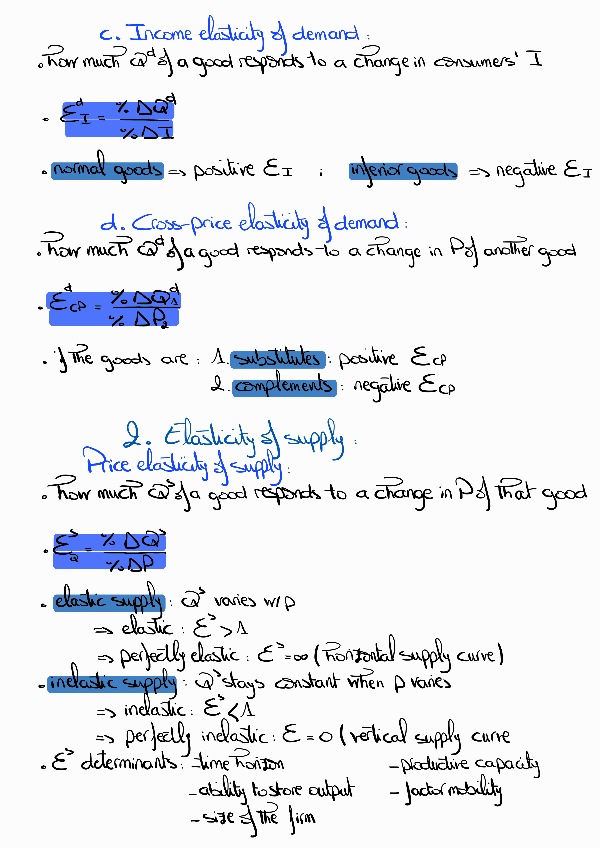 c. Income elasticity of demand :
• how much Qᵈ of a good responds to a change in consumers' I
• Ɛᵈ_I = % ΔQᵈ / % ΔI
• normal goods ⇒ positive Ɛ_I ; inferior goods ⇒ negative Ɛ_I
d. Cross-price elasticity of demand :
• how much Qᵈ of a good responds to a change in P of another good
• Ɛᵈ_CP = % ΔQᵈ₁ / % ΔP₂
• if the goods are : 1. substitutes : positive Ɛ_CP
2. complements : negative Ɛ_CP
2. Elasticity of supply :
Price elasticity of supply :
• how much Qˢ of a good responds to a change in P of that good
• Ɛˢ_Q = % ΔQˢ / % ΔP
• elastic supply : Qˢ varies w/ p
⇒ elastic : Ɛˢ > 1
⇒ perfectly elastic : Ɛˢ = ∞ (horizontal supply curve)
• inelastic supply : Qˢ stays constant when p varies
⇒ inelastic : Ɛˢ < 1
⇒ perfectly inelastic : Ɛ = 0 (vertical supply curve
• Ɛˢ determinants : - time horizon - productive capacity
- ability to store output - factor mobility
- size of the firm